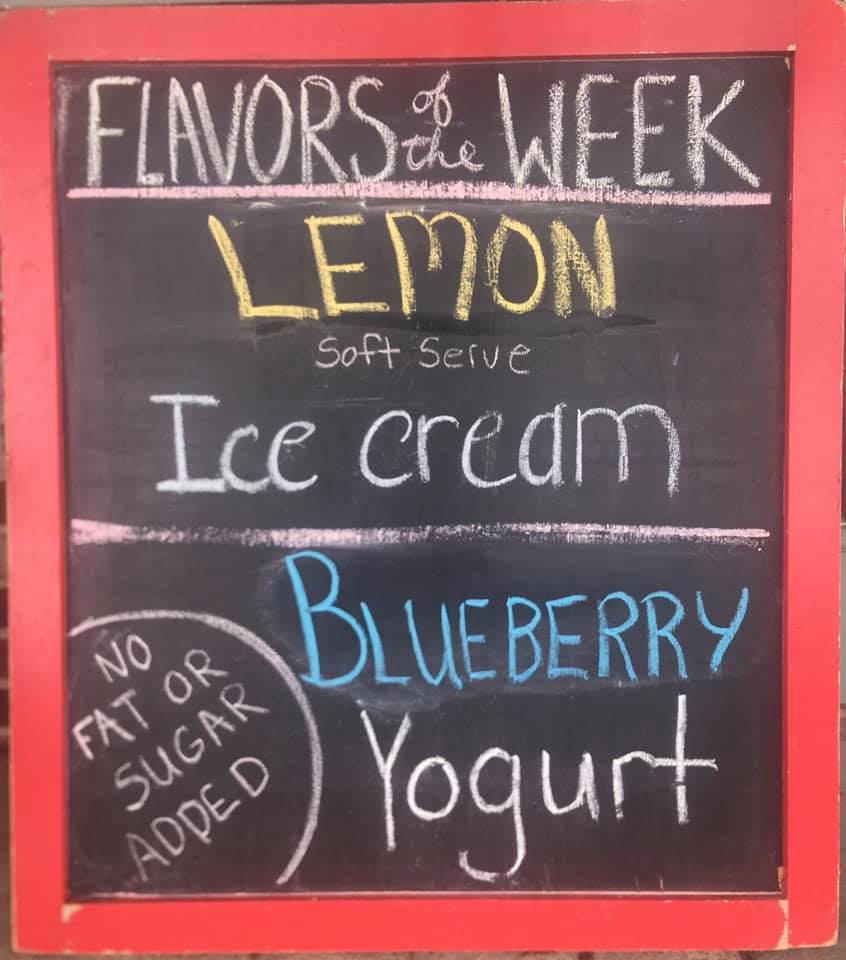 FLAVORS of the WEEK
LEMON
Soft Serve
Ice cream
BLUEBERRY
Yogurt
NO
FAT OR
SUGAR
ADDED